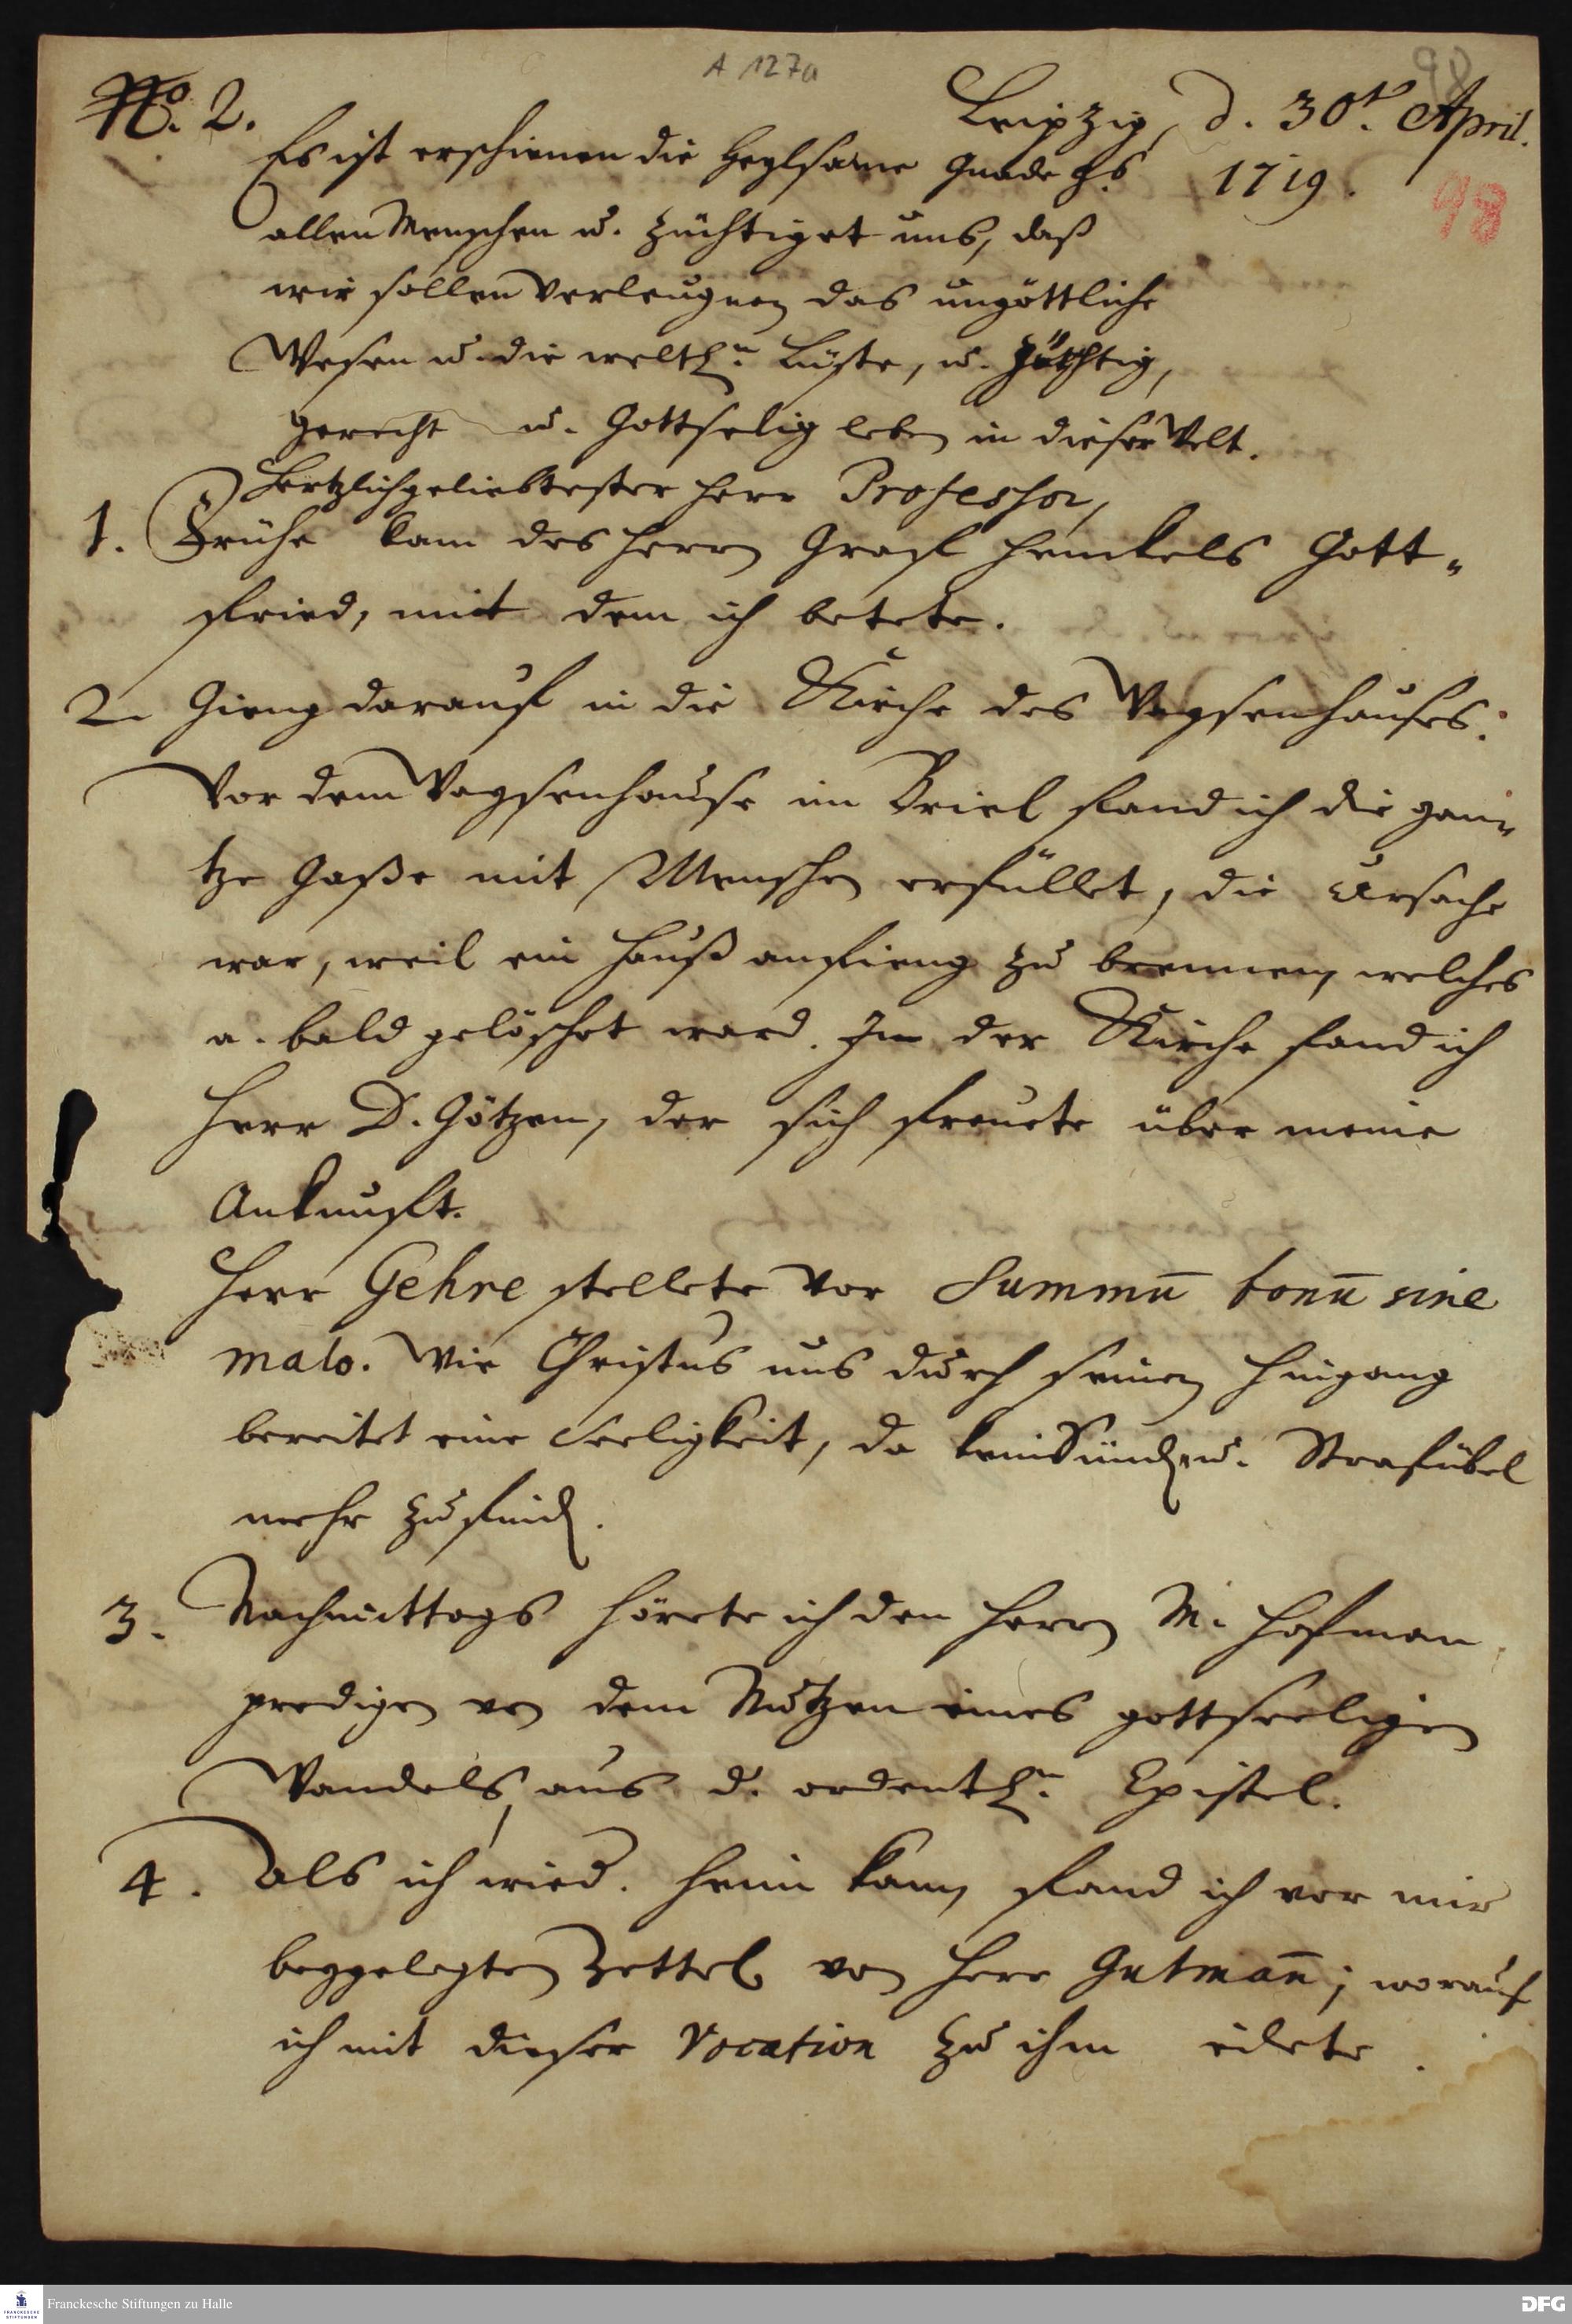 A 127a
98
No. 2.
Leipzig, d. 30t. April.
1719.
98
Es ist erschienen die heylsame Gnade
allen Menschen u. züchtiget uns, daß
wir sollen verleugnen das ungöttliche
Wesen u. die weltl. Lüste, u. züchtig,
gerecht u. Gottselig leben in dieser Welt.
Hertzlichgeliebtester Herr Professor,
1. Frühe kam des Herrn Graf Henckels Gott-
fried, mit dem ich betete.
2. Gieng darauf in die Kirche des Waysenhauses:
Vor dem Waysenhause im Briel fand ich die gan-
tze Gaße mit Menschen erfüllet, die Ursache
war, weil ein Hauß anfieng zu brennen, welches
a. bald gelöschet ward. In der Kirche fand ich
Herr D. Götzen, der sich freuete über meine
Ankunft.
Herr Gehre stellete vor Summū bonū sine
malo. Wie Christus uns durch seinen Hingang
bereitet eine Seeligkeit, da kein Sünden u. Strafübel
mehr zu finden.
3. Nachmittags hörete ich den Herrn M. Hofman
predigen von dem Nutzen eines gottseeligen
Wandels, aus d. ordentl. Epistel.
4. Als ich wied. heim kam, fand ich vor mir
beygelegten Zettel von Herr Gutman̄; worauf
ich mit dieser Vocation zu ihm eilete.
Franckesche Stiftungen zu Halle
FRANCKESCHE
STIFTUNGEN
DFG